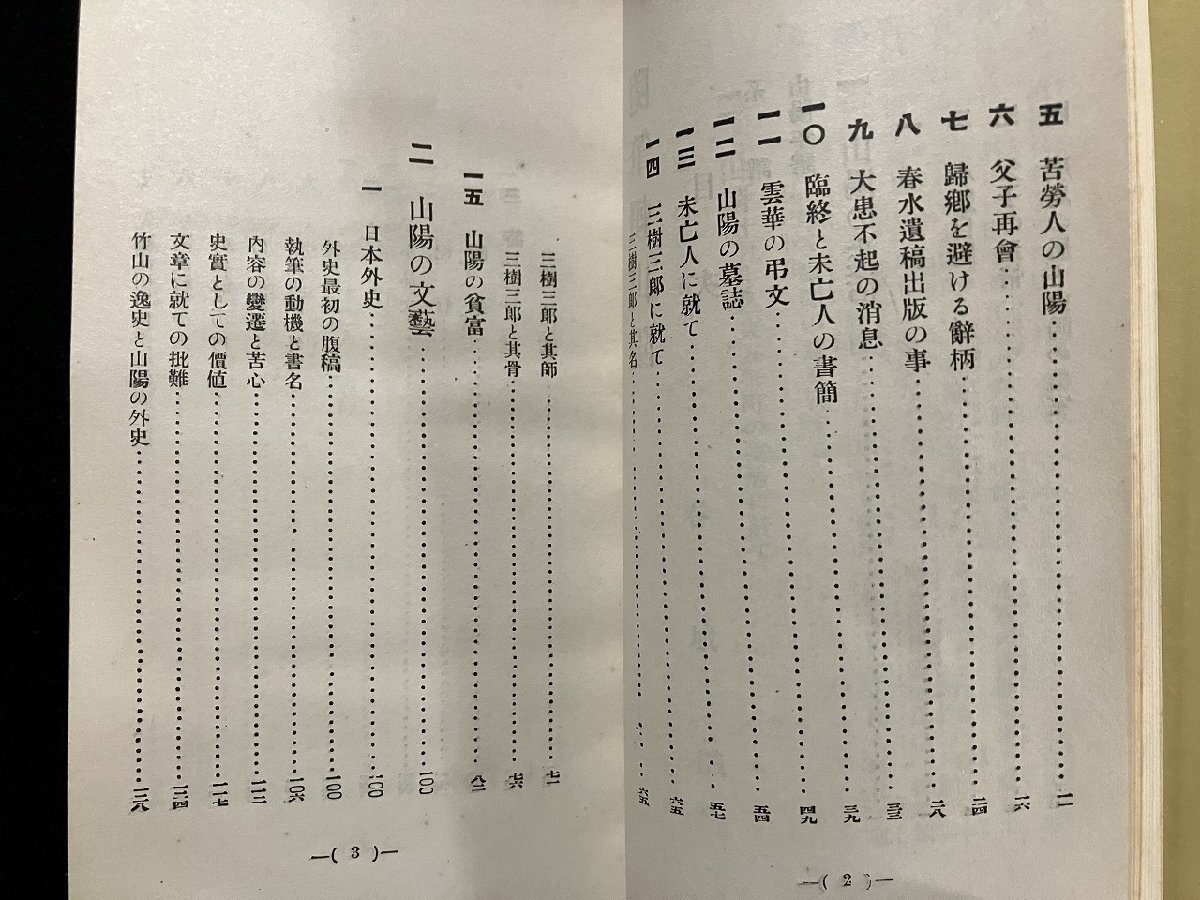 五 苦勞人の山陽……一一
六 父子再會……一六
七 歸鄕を避ける辭柄……二四
八 春水遺稿出版の事……二八
九 大患不起の消息……三九
一〇 臨終と未亡人の書簡……四九
一一 雲華の弔文……五四
一二 山陽の墓誌……五七
一三 未亡人に就て……六五
一四 三樹三郎に就て……六五
三樹三郎と其名……
—( 2 )—
三樹三郎と其師……七一
三樹三郎と其骨……七六
一五 山陽の貧富……八二
二 山陽の文藝……一〇〇
一 日本外史……一〇〇
外史最初の腹稿……一〇〇
執筆の動機と書名……一〇六
內容の變遷と苦心……一一三
史實としての價値……一一七
文章に就ての批難……一二四
竹山の逸史と山陽の外史……一二八
—( 3 )—